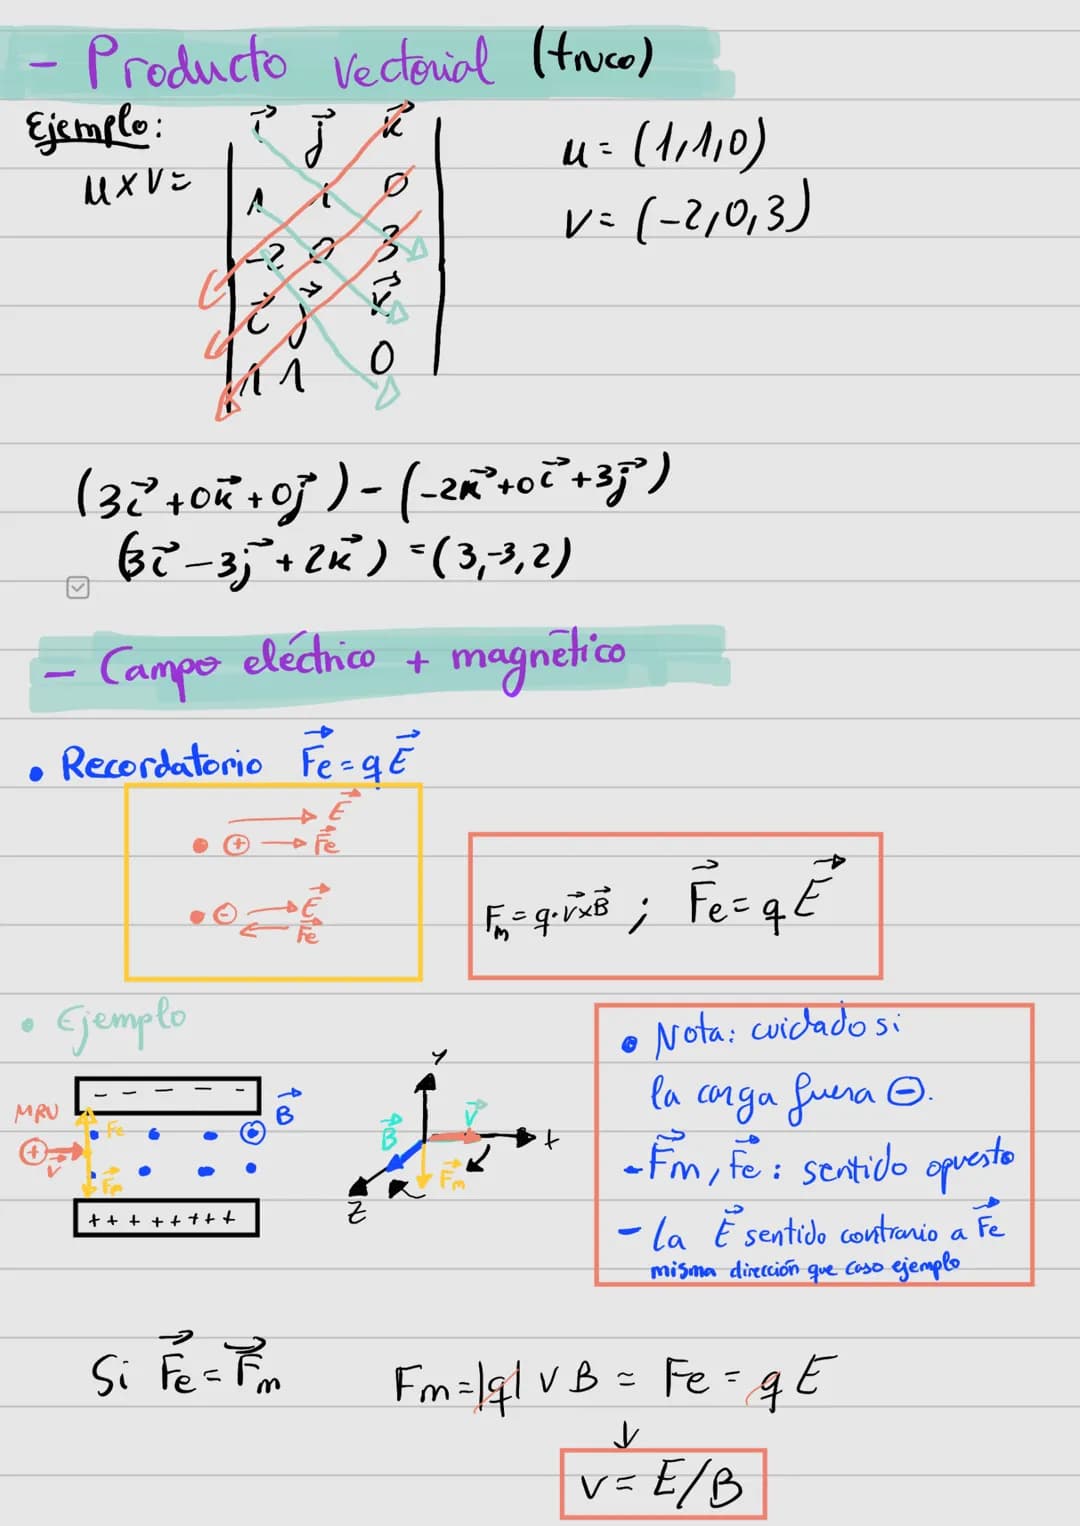 - Producto vectorial (truco)
Ejemplo:
u x v =
i⃗ j⃗ k⃗
1 1 0
-2 0 3
i⃗ j⃗ k⃗
1 1 0
u = (1,1,0)
v = (-2,0,3)
(3i⃗ + 0k⃗ + 0j⃗) - (-2k⃗ + 0i⃗ + 3j⃗)
(3i⃗ - 3j⃗ + 2k⃗) = (3,-3,2)
- Campo eléctrico + magnético
• Recordatorio F⃗e = qE⃗
E⃗
• ⊕ → F⃗e
• ⊖ → E⃗
← F⃗e
Fm = q·v⃗xB⃗ ; F⃗e = qE⃗
• Ejemplo
- - - - -
MRU
⊕ v⃗
Fe
F⃗m
B⃗
+ + + + + + + +
Y
B⃗
v⃗
x
F⃗m
Z
• Nota: cuidado si
la carga fuera ⊖.
- F⃗m, F⃗e : sentido opuesto
- La E⃗ sentido contrario a F⃗e
misma dirección que caso ejemplo
Si F⃗e = F⃗m
Fm = |q| v B = Fe = q E
↓
v = E/B